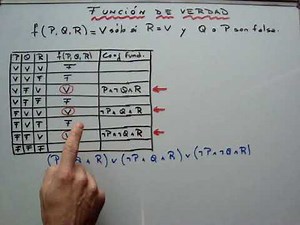 FUNCIÓN DE VERDAD
f(P,Q,R)=V sólo si R=V y Q o P son falsa.
P Q R f(P,Q,R) Conj. Fund.
V V V F
V V F F
V F V V P∧¬Q∧R ←
V F F F
F V V V ¬P∧Q∧R ←
F V F F
F F V V ¬P∧¬Q∧R ←
F F F F
(P Q∧R)∨(¬P∧Q∧R)∨(¬P∧¬Q∧R)